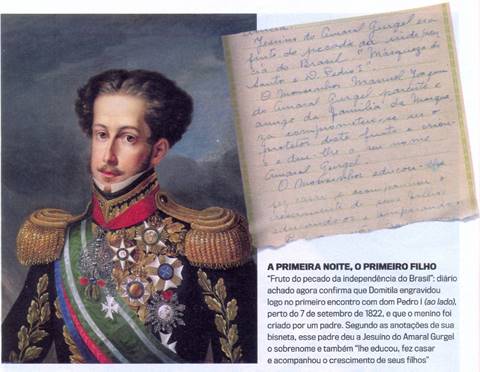 Jesuino do Amaral Gurgel era
fruto do pecado da indepen
cia do Brasil "Marqueza de
Santo e D. Pedro I".
O Monsenhor Manuel Joaquim
do Amaral Gurgel parente e
amigo da familia da Marque
za comprometeu-se ser o
protetor deste fruto e criou-
o e deu-lhe o seu nome
Amaral Gurgel.
O Monsenhor educou-
fez casar e acompanhou o
crescimento de seus filhos
educando-os e amparando
A PRIMEIRA NOITE, O PRIMEIRO FILHO
"Fruto do pecado da independência do Brasil": diário
achado agora confirma que Domitila engravidou
logo no primeiro encontro com dom Pedro I (ao lado),
perto do 7 de setembro de 1822, e que o menino foi
criado por um padre. Segundo as anotações de sua
bisneta, esse padre deu a Jesuino do Amaral Gurgel
o sobrenome e também "lhe educou, fez casar
e acompanhou o crescimento de seus filhos"